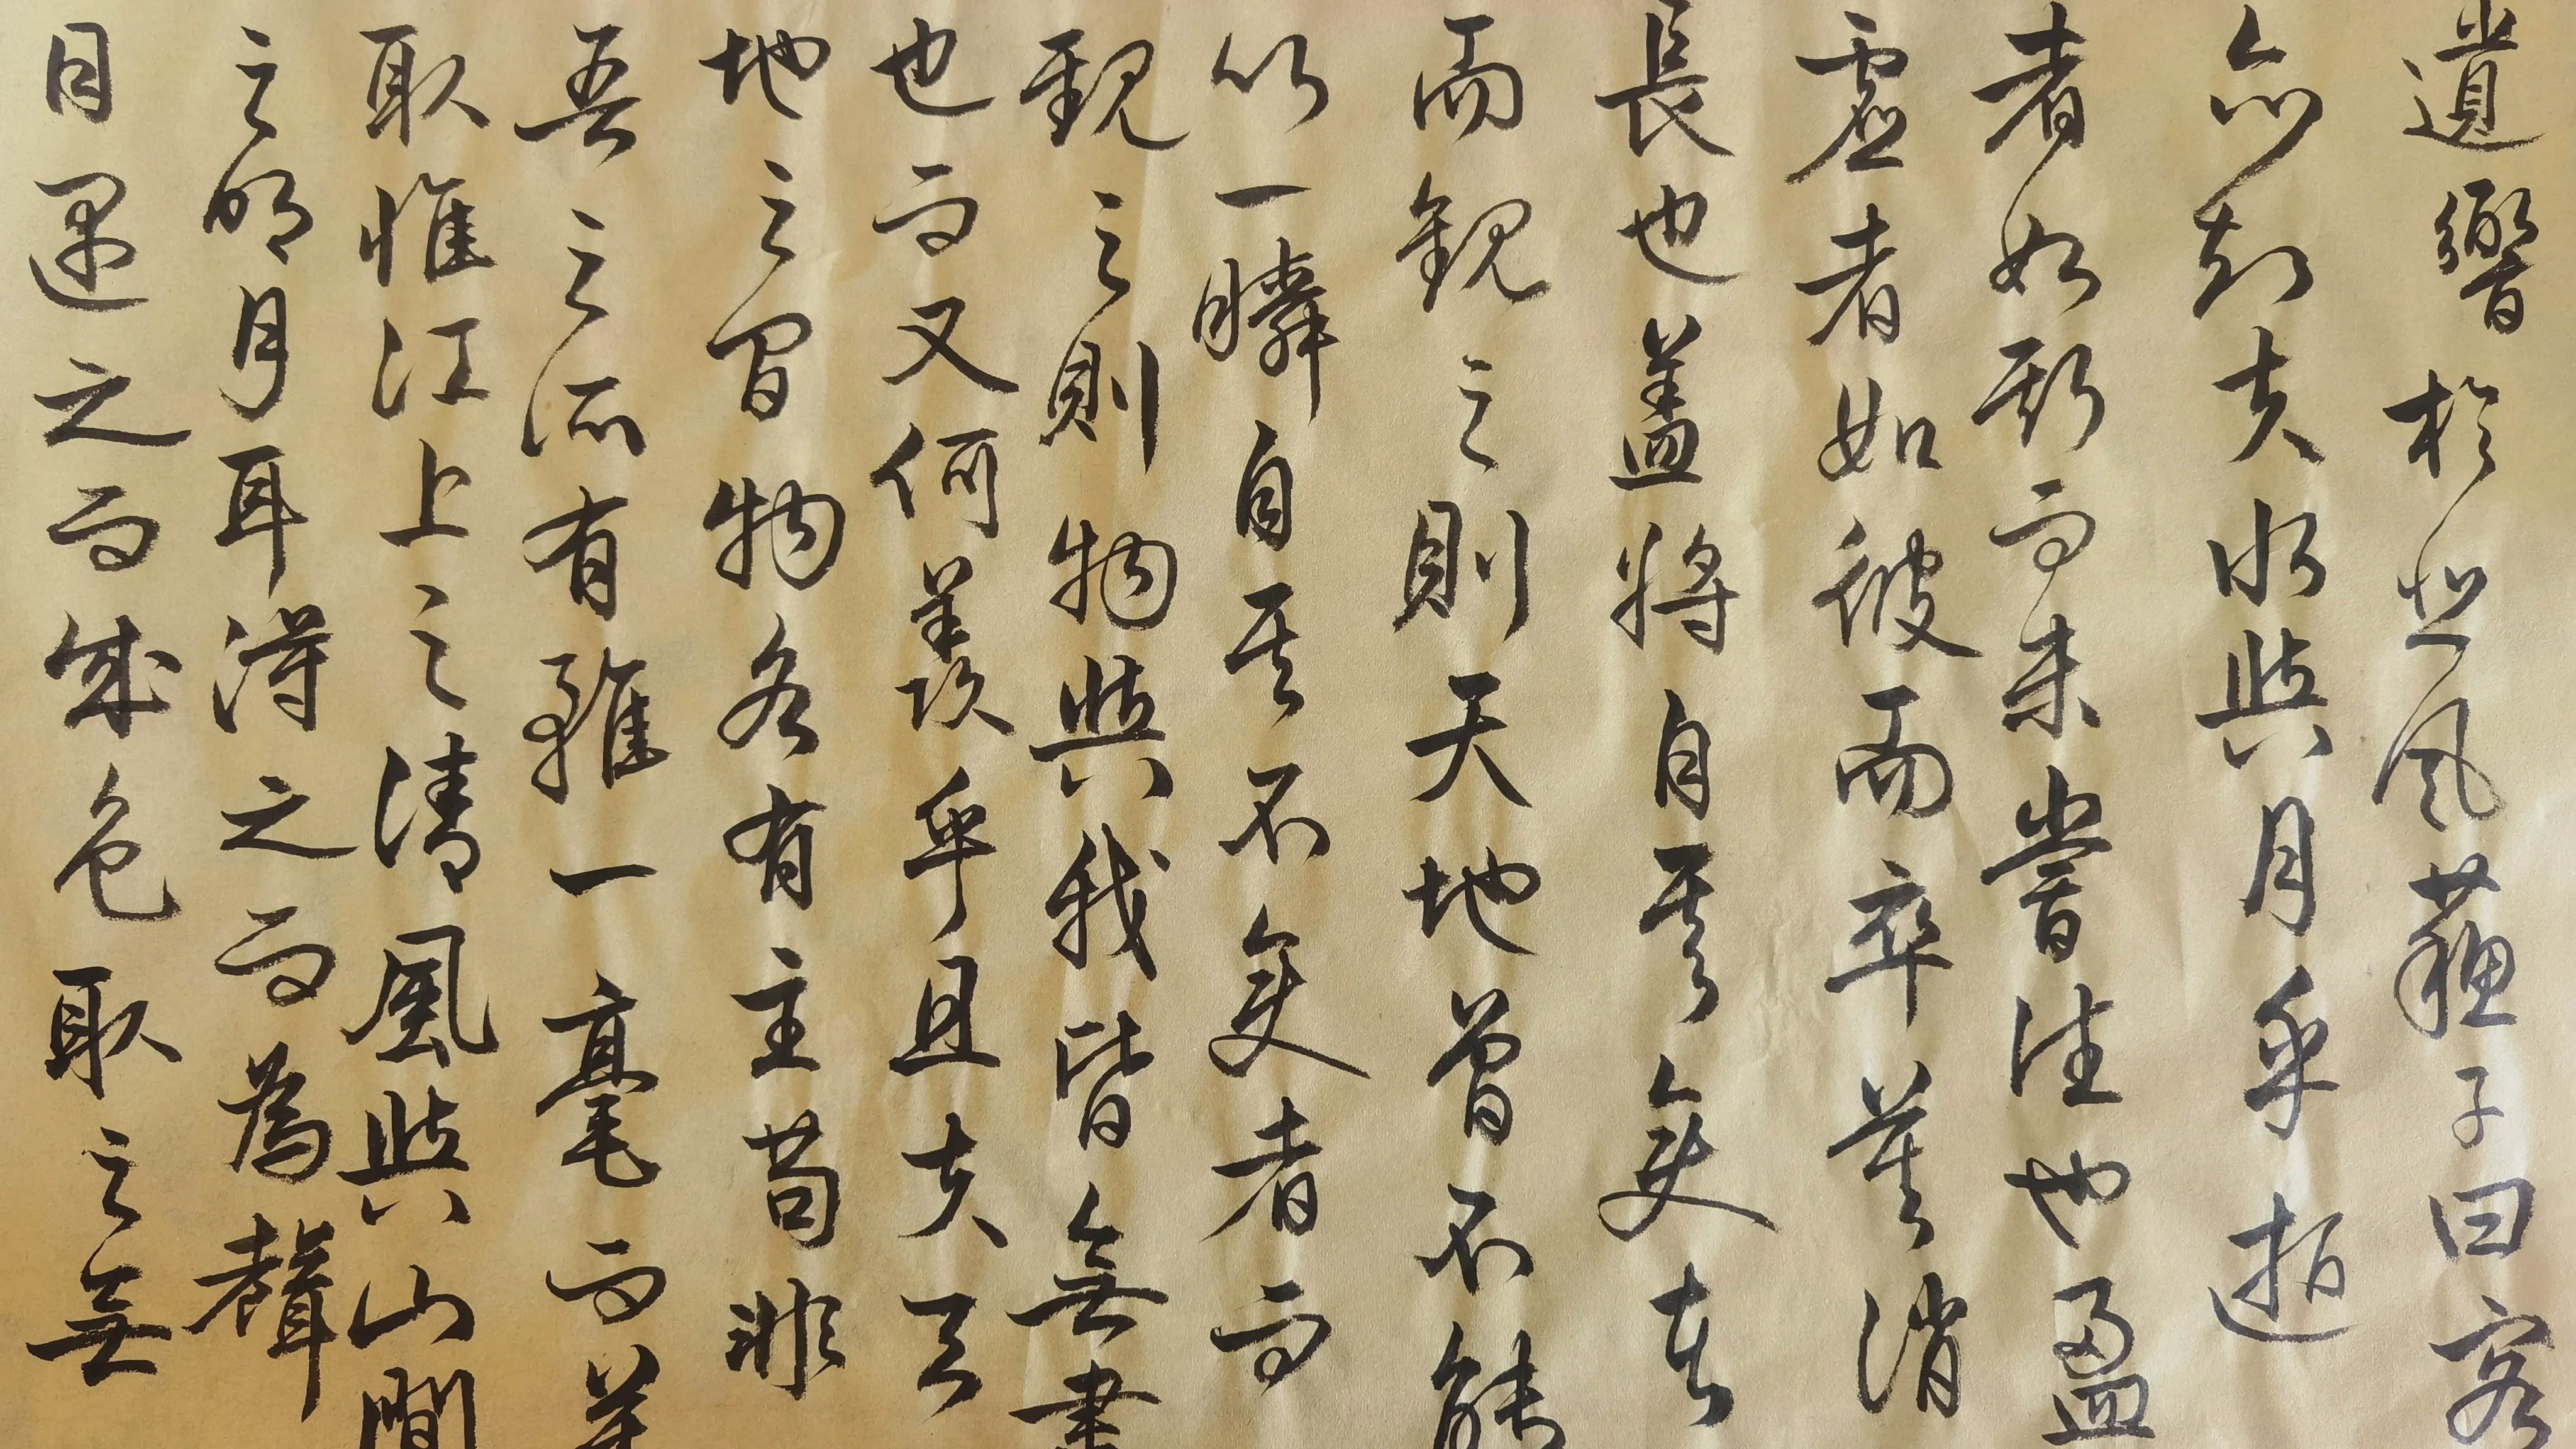 遺響於悲風蘇子曰客
亦知夫水與月乎逝
者如斯而未嘗往也盈
虛者如彼而卒莫消
長也盖將自其變者
而觀之則天地曾不能
以一瞬自其不變者而
觀之則物與我皆無盡
也而又何羨乎且夫天
地之間物各有主苟非
吾之所有雖一毫而莫
取惟江上之清風與山間
之明月耳得之而為聲
目遇之而成色取之無